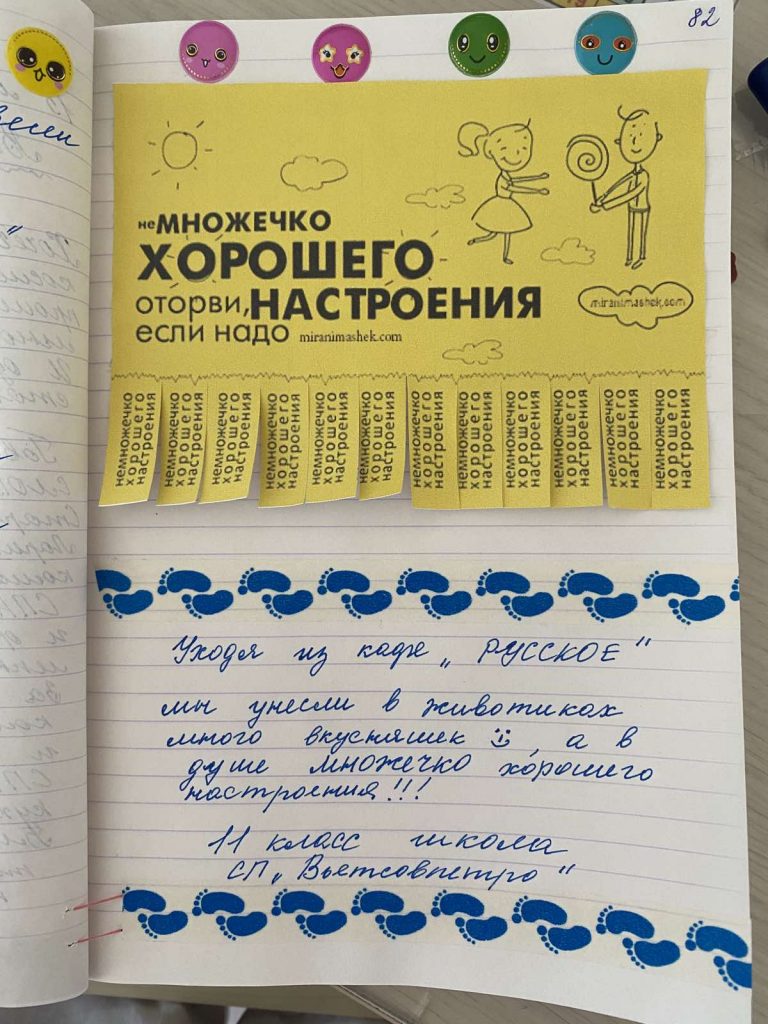 82
весели
неМНОЖЕЧКО
ХОРОШЕГО
оторви, НАСТРОЕНИЯ
если надо miranimashek.com
miranimashek.com
немножечко хорошего настроения
немножечко хорошего настроения
немножечко хорошего настроения
немножечко хорошего настроения
немножечко хорошего настроения
немножечко хорошего настроения
немножечко хорошего настроения
немножечко хорошего настроения
немножечко хорошего настроения
немножечко хорошего настроения
немножечко хорошего настроения
немножечко хорошего настроения
Уходя из кафе „РУССКОЕ"
мы унесли в животиках
много вкусняшек, а в
душе множечко хорошего
настроения!!!
11 класс школа
СП „Вьетсовпетро"